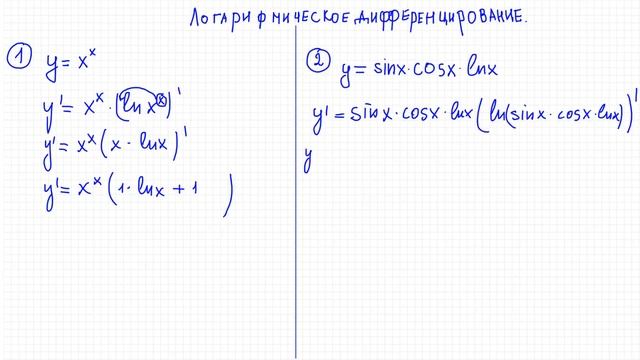 ЛОГАРИФМИЧЕСКОЕ ДИФФЕРЕНЦИРОВАНИЕ.
1
y = x^x
y' = x^x · (ln x^x)'
y' = x^x (x · lnx)'
y' = x^x (1 · lnx + 1 )
2
y = sinx · cosx · lnx
y' = sinx · cosx · lnx (ln(sinx · cosx · lnx))'
y